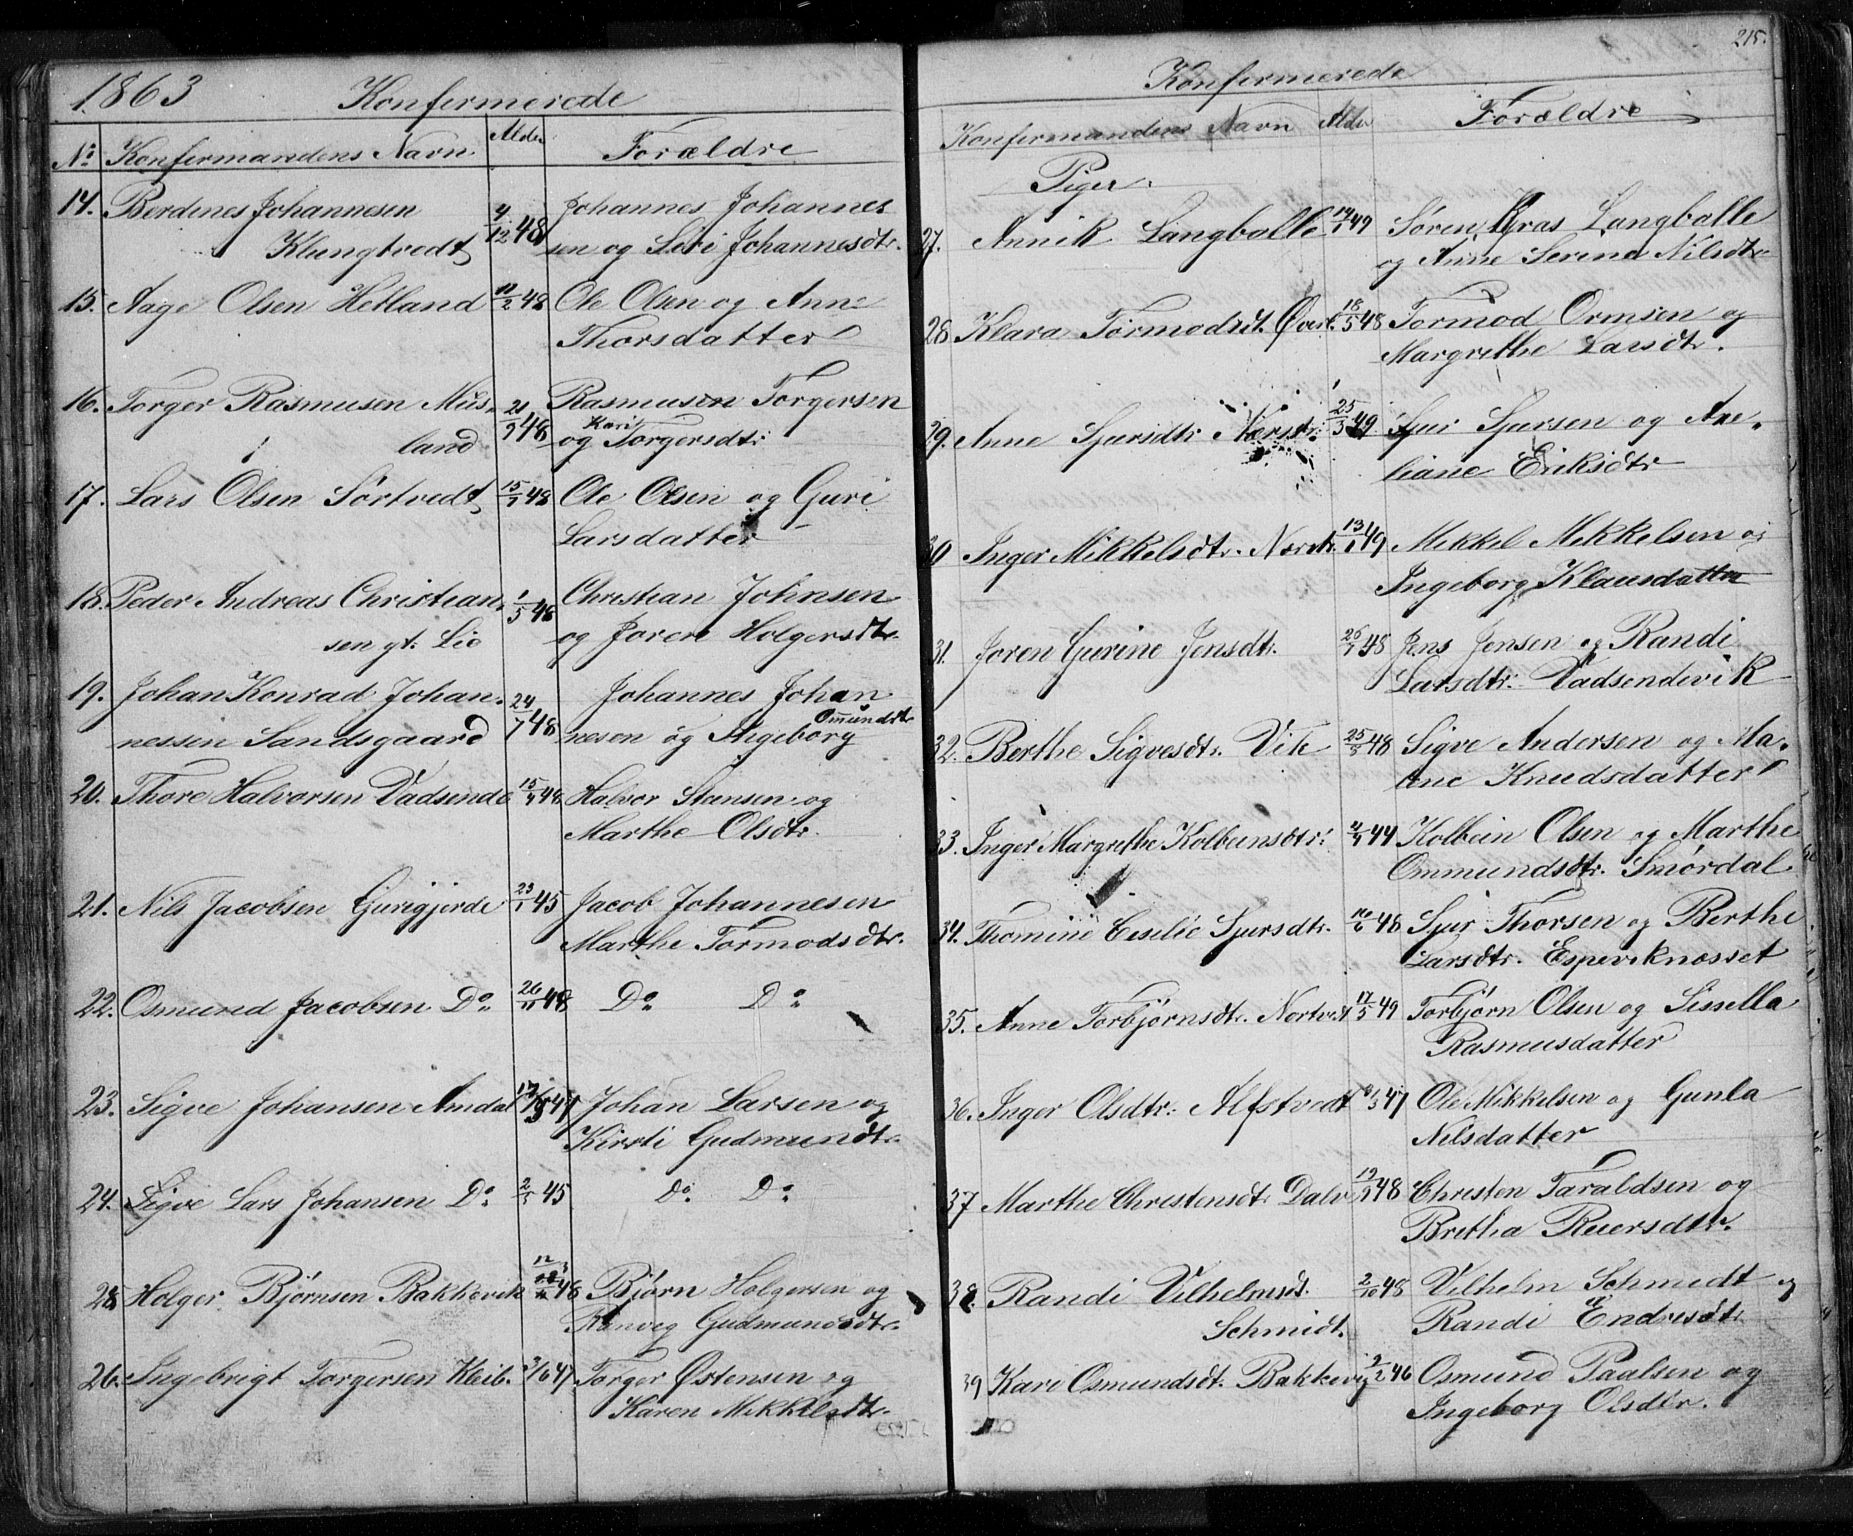 1863 Konfermerede
No Konfermandens Navn Alder Forældre
14. Berdines Johannesen 4/12 48 Johannes Johannes
Klungtvedt sen og Siri Johannesdtr.
15. Aage Olsen Hetland 11/2 48 Ole Olsen og Anne
Thorsdatter
16. Torger Rasmusen Mus- 21/9 48 Rasmusen Torgersen
land og Kari Torgersdtr:
17. Lars Olsen Sørtvedt 15/7 48 Ole Olsen og Guri
Larsdatter
18. Peder Andreas Christian- 1/5 48 Christian Johnsen
sen gt. Lie og Joren Holgersdtr.
19. Johan Konrad Johan- 24/7 48 Johannes Johan
nessen Sandsgaard nesen og Ingeborg Omundsdtr
20. Thore Halvorsen Vadsende 15/4 48 Halvor Stensen og
Marthe Olsdtr.
21. Nils Jacobsen Gurigjerde 23/1 45 Jacob Johannesen
Marthe Tormodsdtr.
22. Osmund Jacobsen Do 26/11 48 Do Do
23. Sigve Johansen Amdal 47 Johan Larsen og
Kirsti Gudmundtr.
24. Sigve Lars Johansen Do 2/5 45 Do Do
25 Holger Bjørnsen Bakkevik 48 Bjørn Holgersen og
Ranveg Gudmundsdtr.
26. Ingebrigt Torgersen Kleib. 3/6 47 Torger Østensen og
Karen Mikkelsdtr.
215.
Konfermerede
Konfermandens Navn Alder Forældre
Piger.
27. Annik Langballe 14/1 49 Søren Kras Langballe
og Anne Serine Nilsdtr
28 Klara Tormodsdt. Øvreb. 18/5 48 Tormod Ormsen og
Margrethe Larsdtr.
29. Anne Sjursdtr Nærstr: 25/3 49 Sjur Sjursen og Axe-
liane Eriksdtr
30 Inger Mikkelsdtr. Nærstr. 13/1 49 Mikkel Mikkelsen og
Ingeborg Klausdatter
31. Joren Gurine Jensdtr. 26/7 48 Jens Jensen og Randi
Larsdtr: Vadsendevik
32. Berthe Sigvesdtr. Vik 25/8 48 Sigve Andersen og Ma-
Knudsdatter
33. Inger Margrethe Kolbeinsdtr: 44 Kolbein Olsen og Marthe
Ommundsdtr. Smørdal
34. Thomine Ceselie Sjursdtr. 16/6 48 Sjur Thorsen og Berthe
Larsdtr. Espeviknesset
35. Anne Torbjørnsdtr. Nortvedt 17/5 49 Torbjørn Olsen og Sissella
Rasmusdatter
36. Inger Olsdtr: Alfstvedt 47 Ole Mikkelsen og Gunla
Nilsdatter
37 Marthe Christensdtr Dalv 48 Christen Taraldsen og
Bretha Reiersdtr.
38. Randi Vilhelmsdt. 2/10 48 Vilhelm Schmidt og
Schmidt. Randi Endresdtr
39 Kari Osmundsdt. Bakkevig 2/2 46 Osmund Paalsen og
Ingeborg Olsdtr.